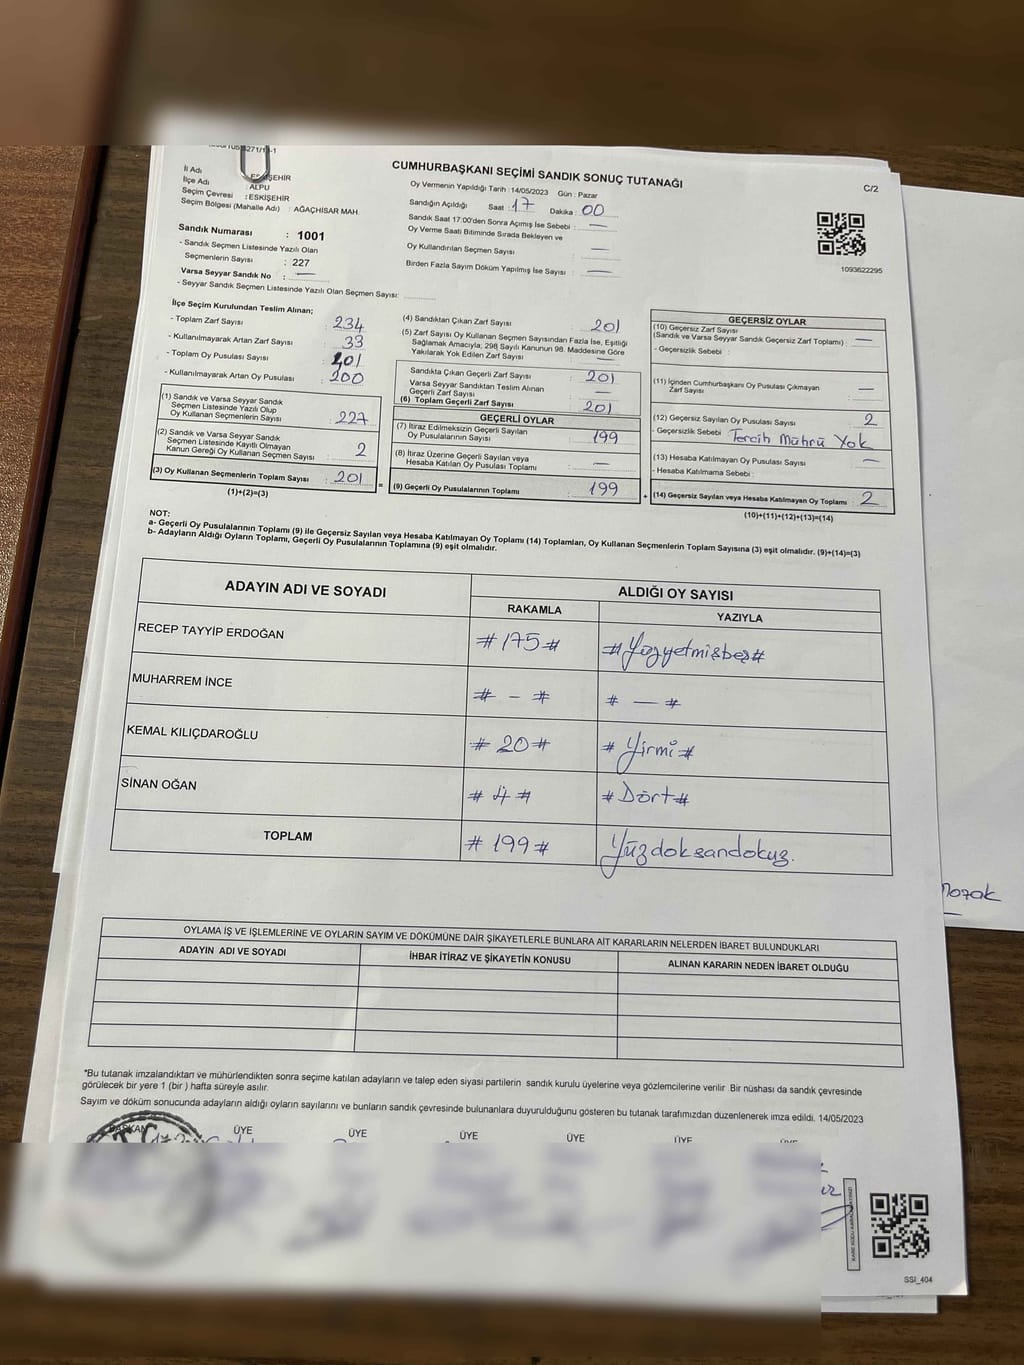 CUMHURBAŞKANI SEÇİMİ SANDIK SONUÇ TUTANAĞI
C/2
İl Adı : ESKİŞEHİR
İlçe Adı : ALPU
Seçim Çevresi : ESKİŞEHİR
Seçim Bölgesi (Mahalle Adı) : AĞAÇHİSAR MAH.
Sandık Numarası : 1001
- Sandık Seçmen Listesinde Yazılı Olan
Seçmenlerin Sayısı : 227
Varsa Seyyar Sandık No : —
- Seyyar Sandık Seçmen Listesinde Yazılı Olan Seçmen Sayısı:
Oy Vermenin Yapıldığı Tarih : 14/05/2023 Gün : Pazar
Sandığın Açıldığı Saat : 17 Dakika : 00
Sandık Saat 17:00'den Sonra Açımış İse Sebebi : —
Oy Verme Saati Bitiminde Sırada Bekleyen ve
Oy Kullandırılan Seçmen Sayısı : —
Birden Fazla Sayım Döküm Yapılmış İse Sayısı : —
1093622295
İlçe Seçim Kurulundan Teslim Alınan;
- Toplam Zarf Sayısı : 234
- Kullanılmayarak Artan Zarf Sayısı : 33
- Toplam Oy Pusulası Sayısı : 401
- Kullanılmayarak Artan Oy Pusulası : 200
(1) Sandık ve Varsa Seyyar Sandık
Seçmen Listesinde Yazılı Olup
Oy Kullanan Seçmenlerin Sayısı : 227
(2) Sandık ve Varsa Seyyar Sandık
Seçmen Listesinde Kayıtlı Olmayan
Kanun Gereği Oy Kullanan Seçmen Sayısı : 2
(3) Oy Kullanan Seçmenlerin Toplam Sayısı : 201
(1)+(2)=(3)
(4) Sandıktan Çıkan Zarf Sayısı : 201
(5) Zarf Sayısı Oy Kullanan Seçmen Sayısından Fazla İse, Eşitliği
Sağlamak Amacıyla; 298 Sayılı Kanunun 98. Maddesine Göre
Yakılarak Yok Edilen Zarf Sayısı : —
Sandıkta Çıkan Geçerli Zarf Sayısı : 201
Varsa Seyyar Sandıktan Teslim Alınan
Geçerli Zarf Sayısı : —
(6) Toplam Geçerli Zarf Sayısı : 201
GEÇERLİ OYLAR
(7) İtiraz Edilmeksizin Geçerli Sayılan
Oy Pusulalarının Sayısı : 199
(8) İtiraz Üzerine Geçerli Sayılan veya
Hesaba Katılan Oy Pusulası Toplamı : —
(9) Geçerli Oy Pusulalarının Toplamı : 199
GEÇERSİZ OYLAR
(10) Geçersiz Zarf Sayısı
(Sandık ve Varsa Seyyar Sandık Geçersiz Zarf Toplamı) : —
- Geçersizlik Sebebi :
(11) İçinden Cumhurbaşkanı Oy Pusulası Çıkmayan
Zarf Sayısı : —
(12) Geçersiz Sayılan Oy Pusulası Sayısı : 2
- Geçersizlik Sebebi : Tercih Mührü Yok
(13) Hesaba Katılmayan Oy Pusulası Sayısı : —
- Hesaba Katılmama Sebebi :
(14) Geçersiz Sayılan veya Hesaba Katılmayan Oy Toplamı : 2
(10)+(11)+(12)+(13)=(14)
NOT:
a- Geçerli Oy Pusulalarının Toplamı (9) ile Geçersiz Sayılan veya Hesaba Katılmayan Oy Toplamı (14) Toplamları, Oy Kullanan Seçmenlerin Toplam Sayısına (3) eşit olmalıdır. (9)+(14)=(3)
b- Adayların Aldığı Oyların Toplamı, Geçerli Oy Pusulalarının Toplamına (9) eşit olmalıdır.
ADAYIN ADI VE SOYADI
ALDIĞI OY SAYISI
RAKAMLA YAZIYLA
RECEP TAYYİP ERDOĞAN # 175 # # Yüzyetmişbeş #
MUHARREM İNCE # - # # — #
KEMAL KILIÇDAROĞLU # 20 # # Yirmi #
SİNAN OĞAN # 4 # # Dört #
TOPLAM # 199 # Yüzdoksandokuz.
OYLAMA İŞ VE İŞLEMLERİNE VE OYLARIN SAYIM VE DÖKÜMÜNE DAİR ŞİKAYETLERLE BUNLARA AİT KARARLARIN NELERDEN İBARET BULUNDUKLARI
ADAYIN ADI VE SOYADI İHBAR İTİRAZ VE ŞİKAYETİN KONUSU ALINAN KARARIN NEDEN İBARET OLDUĞU
*Bu tutanak imzalandıktan ve mühürlendikten sonra seçime katılan adayların ve talep eden siyasi partilerin sandık kurulu üyelerine veya gözlemcilerine verilir Bir nüshası da sandık çevresinde
görülecek bir yere 1 (bir ) hafta süreyle asılır.
Sayım ve döküm sonucunda adayların aldığı oyların sayılarını ve bunların sandık çevresinde bulunanlara duyurulduğunu gösteren bu tutanak tarafımızdan düzenlenerek imza edildi. 14/05/2023
BAŞKAN ÜYE ÜYE ÜYE ÜYE ÜYE ÜYE
T.C.
SSI_404